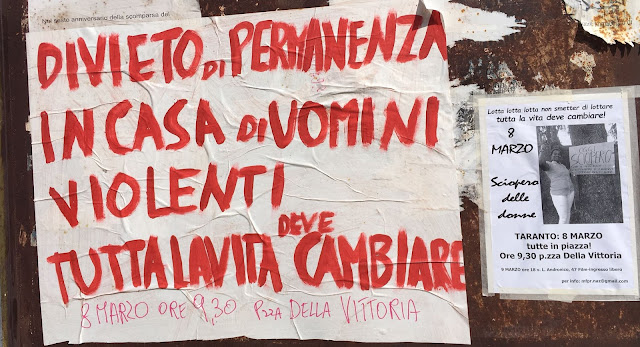 Nel sesto anniversario della scomparsa del
DIVIETO DI PERMANENZA
IN CASA DI UOMINI
VIOLENTI
TUTTA LA VITA DEVE CAMBIARE
8 MARZO ORE 9,30 P.zza DELLA VITTORIA
Lotta lotta lotta non smetter di lottare
tutta la vita deve cambiare!
8
MARZO
SCIOPERO
Sciopero
delle
donne
TARANTO: 8 MARZO
tutte in piazza!
Ore 9,30 p.zza Della Vittoria
8 MARZO ore 18 v. L. Andronico, 47 Film-ingresso libero
per info: mfpr.naz@gmail.com